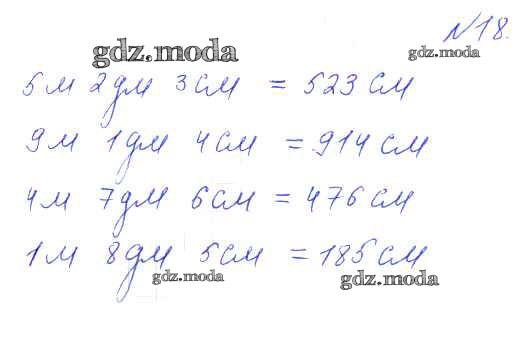 №18.
gdz.moda gdz.moda
5 м 2 дм 3 см = 523 см
9 м 1 дм 4 см = 914 см
4 м 7 дм 6 см = 476 см
1 м 8 дм 5 см = 185 см
gdz.moda gdz.moda